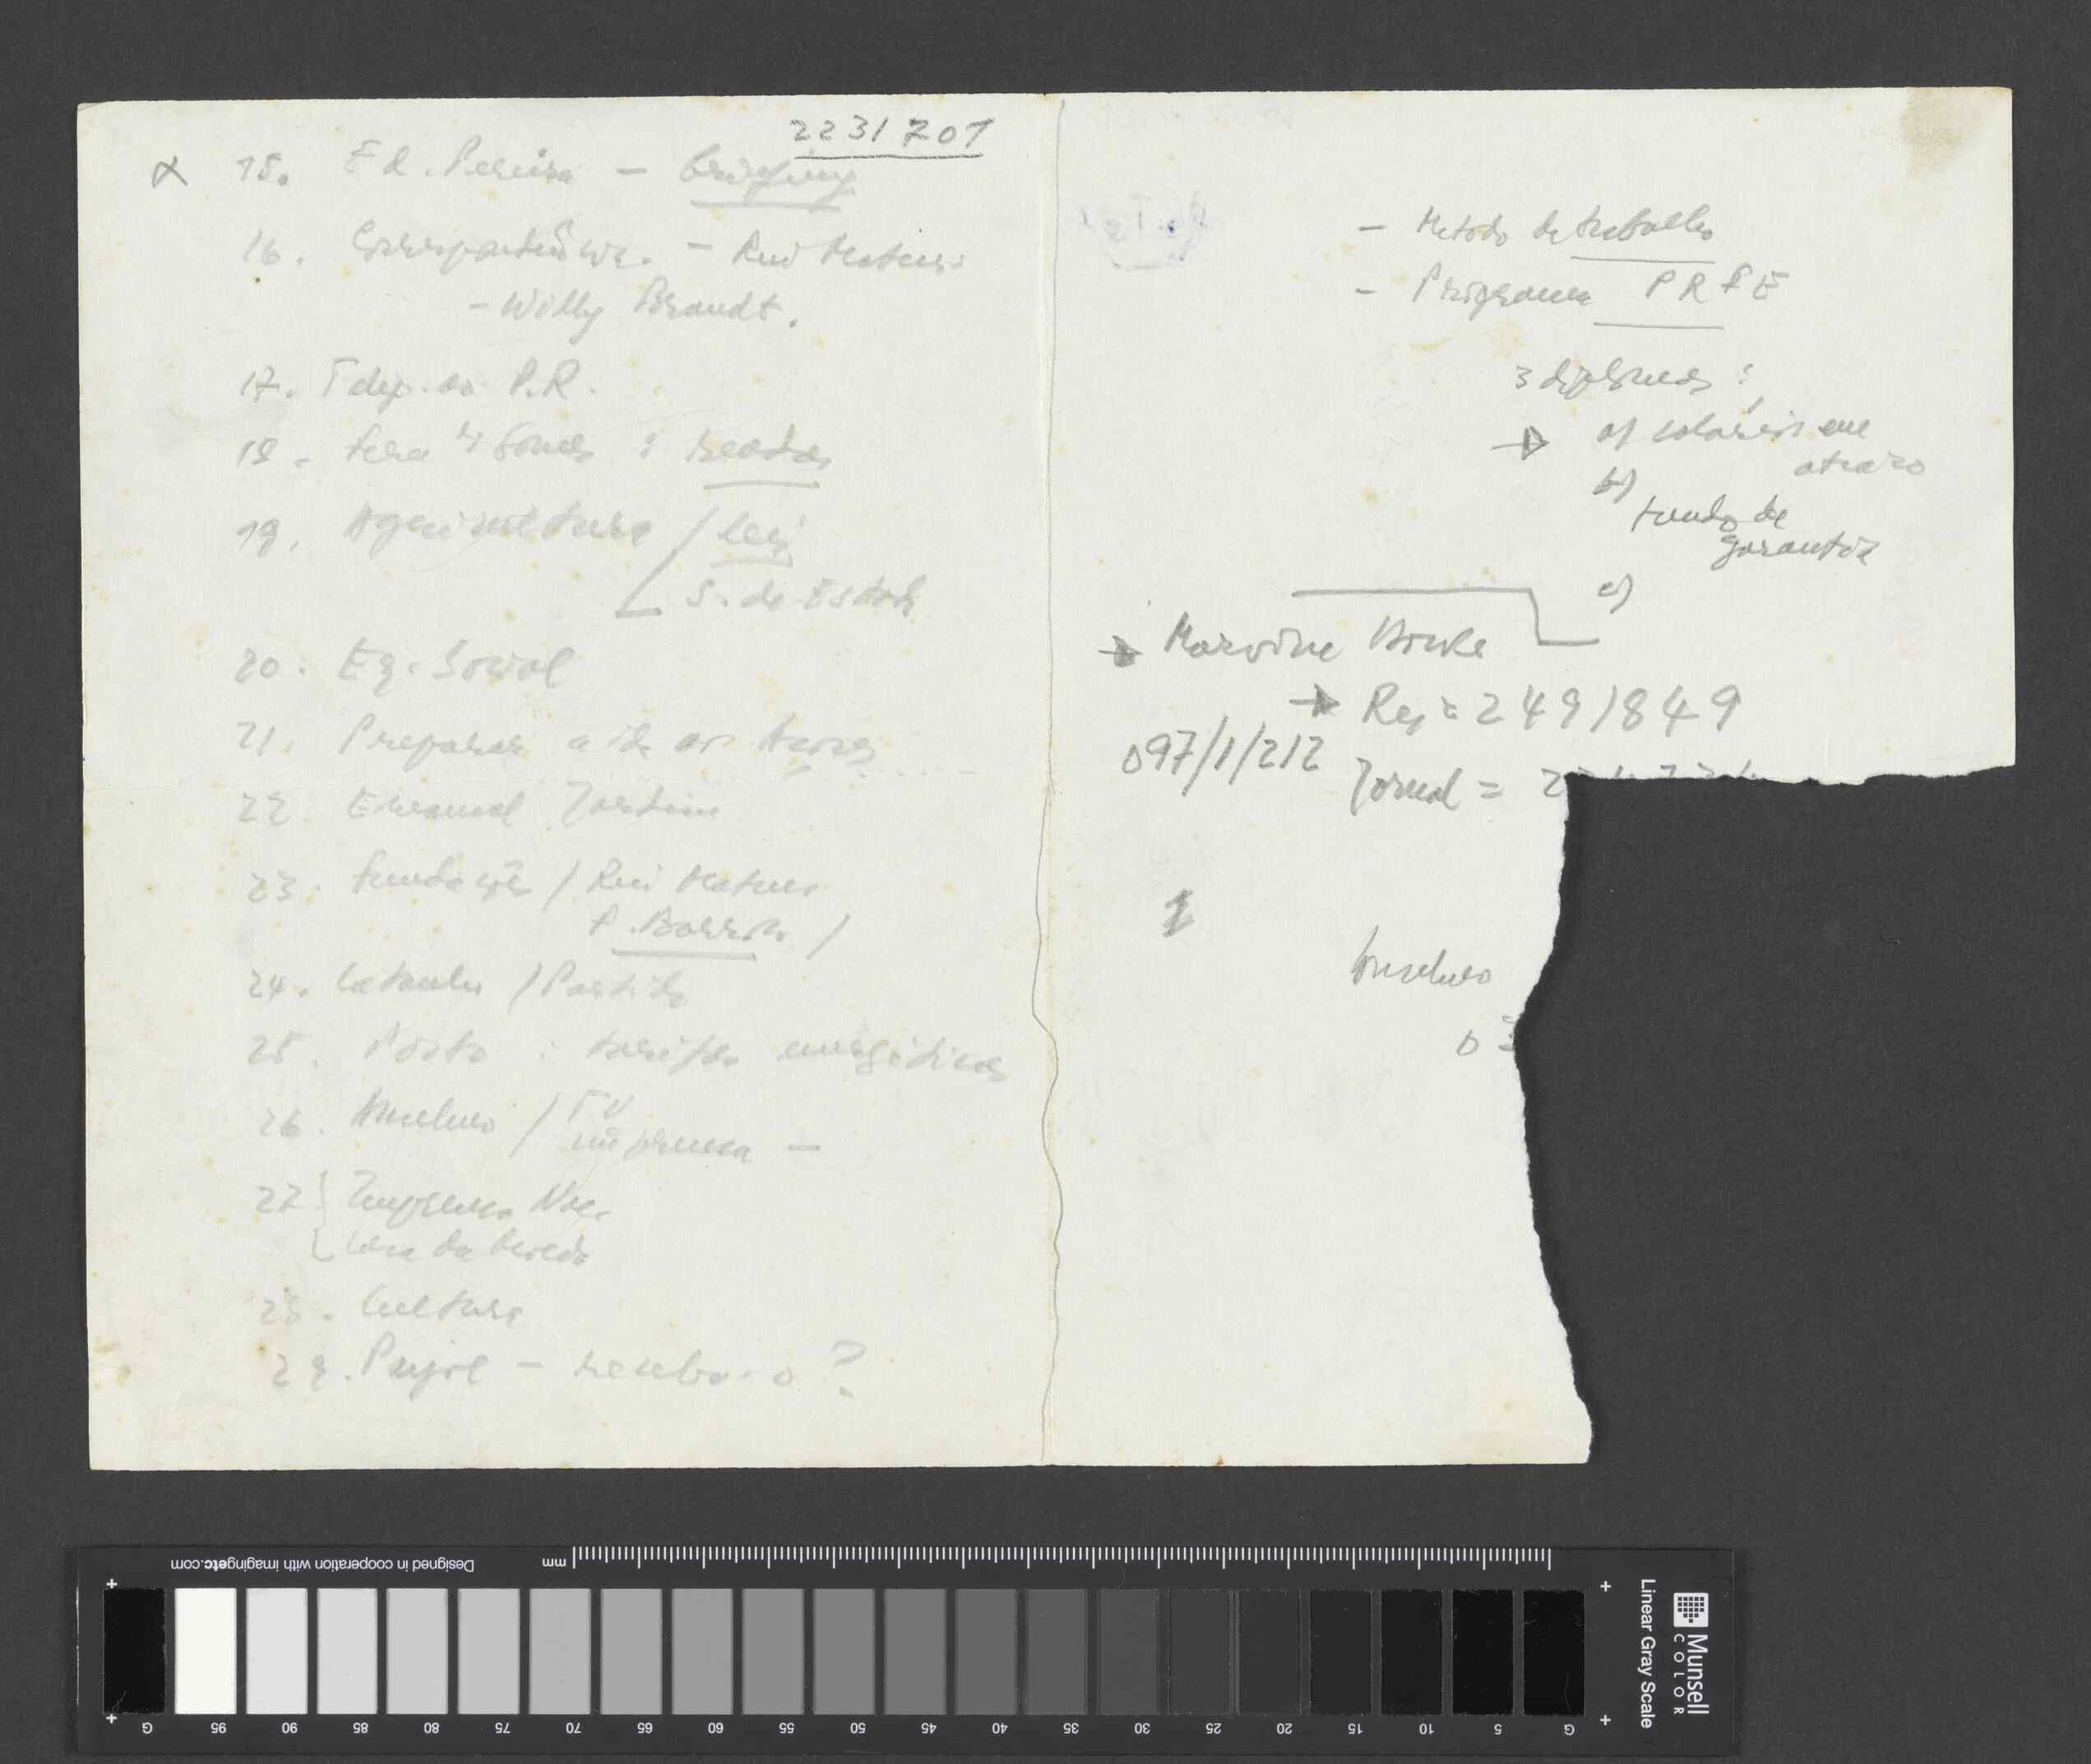 2231707
15. Ed. Pereira - briefing
16. Correspondência - Rui Mateus
- Willy Brandt.
17. Telep. ao P.R.
18. 4ª
19. Agricultura / lei
S. de Estado
20. Eq. Social
21. Preparar a ida aos Açores
22. Emanuel Jardim
23. Fundação / Rui Mateus
P. Barroso /
24. / Partido
25. Porto : tarifas energéticas
26. Anselmo / TV
imprensa -
27 { Imprensa Nac.
Casa da Moeda
28. Cultura
29. Pujol - recebo-o ?
- Metodo de trabalho
- Programa PRFE
3 diplomas :
a) salários em
atraso
b)
Fundo de
garantia
c)
→ Horvine
→ Res = 2491849
097/1/212 Jornal = 2
Anselmo
0
Designed in cooperation with imagingetc.com
mm
G 95 90 85 80 75 70 65 60 55 50 45 40 35 30 25 20 15 10 5 G
Linear Gray Scale
Munsell
COLOR